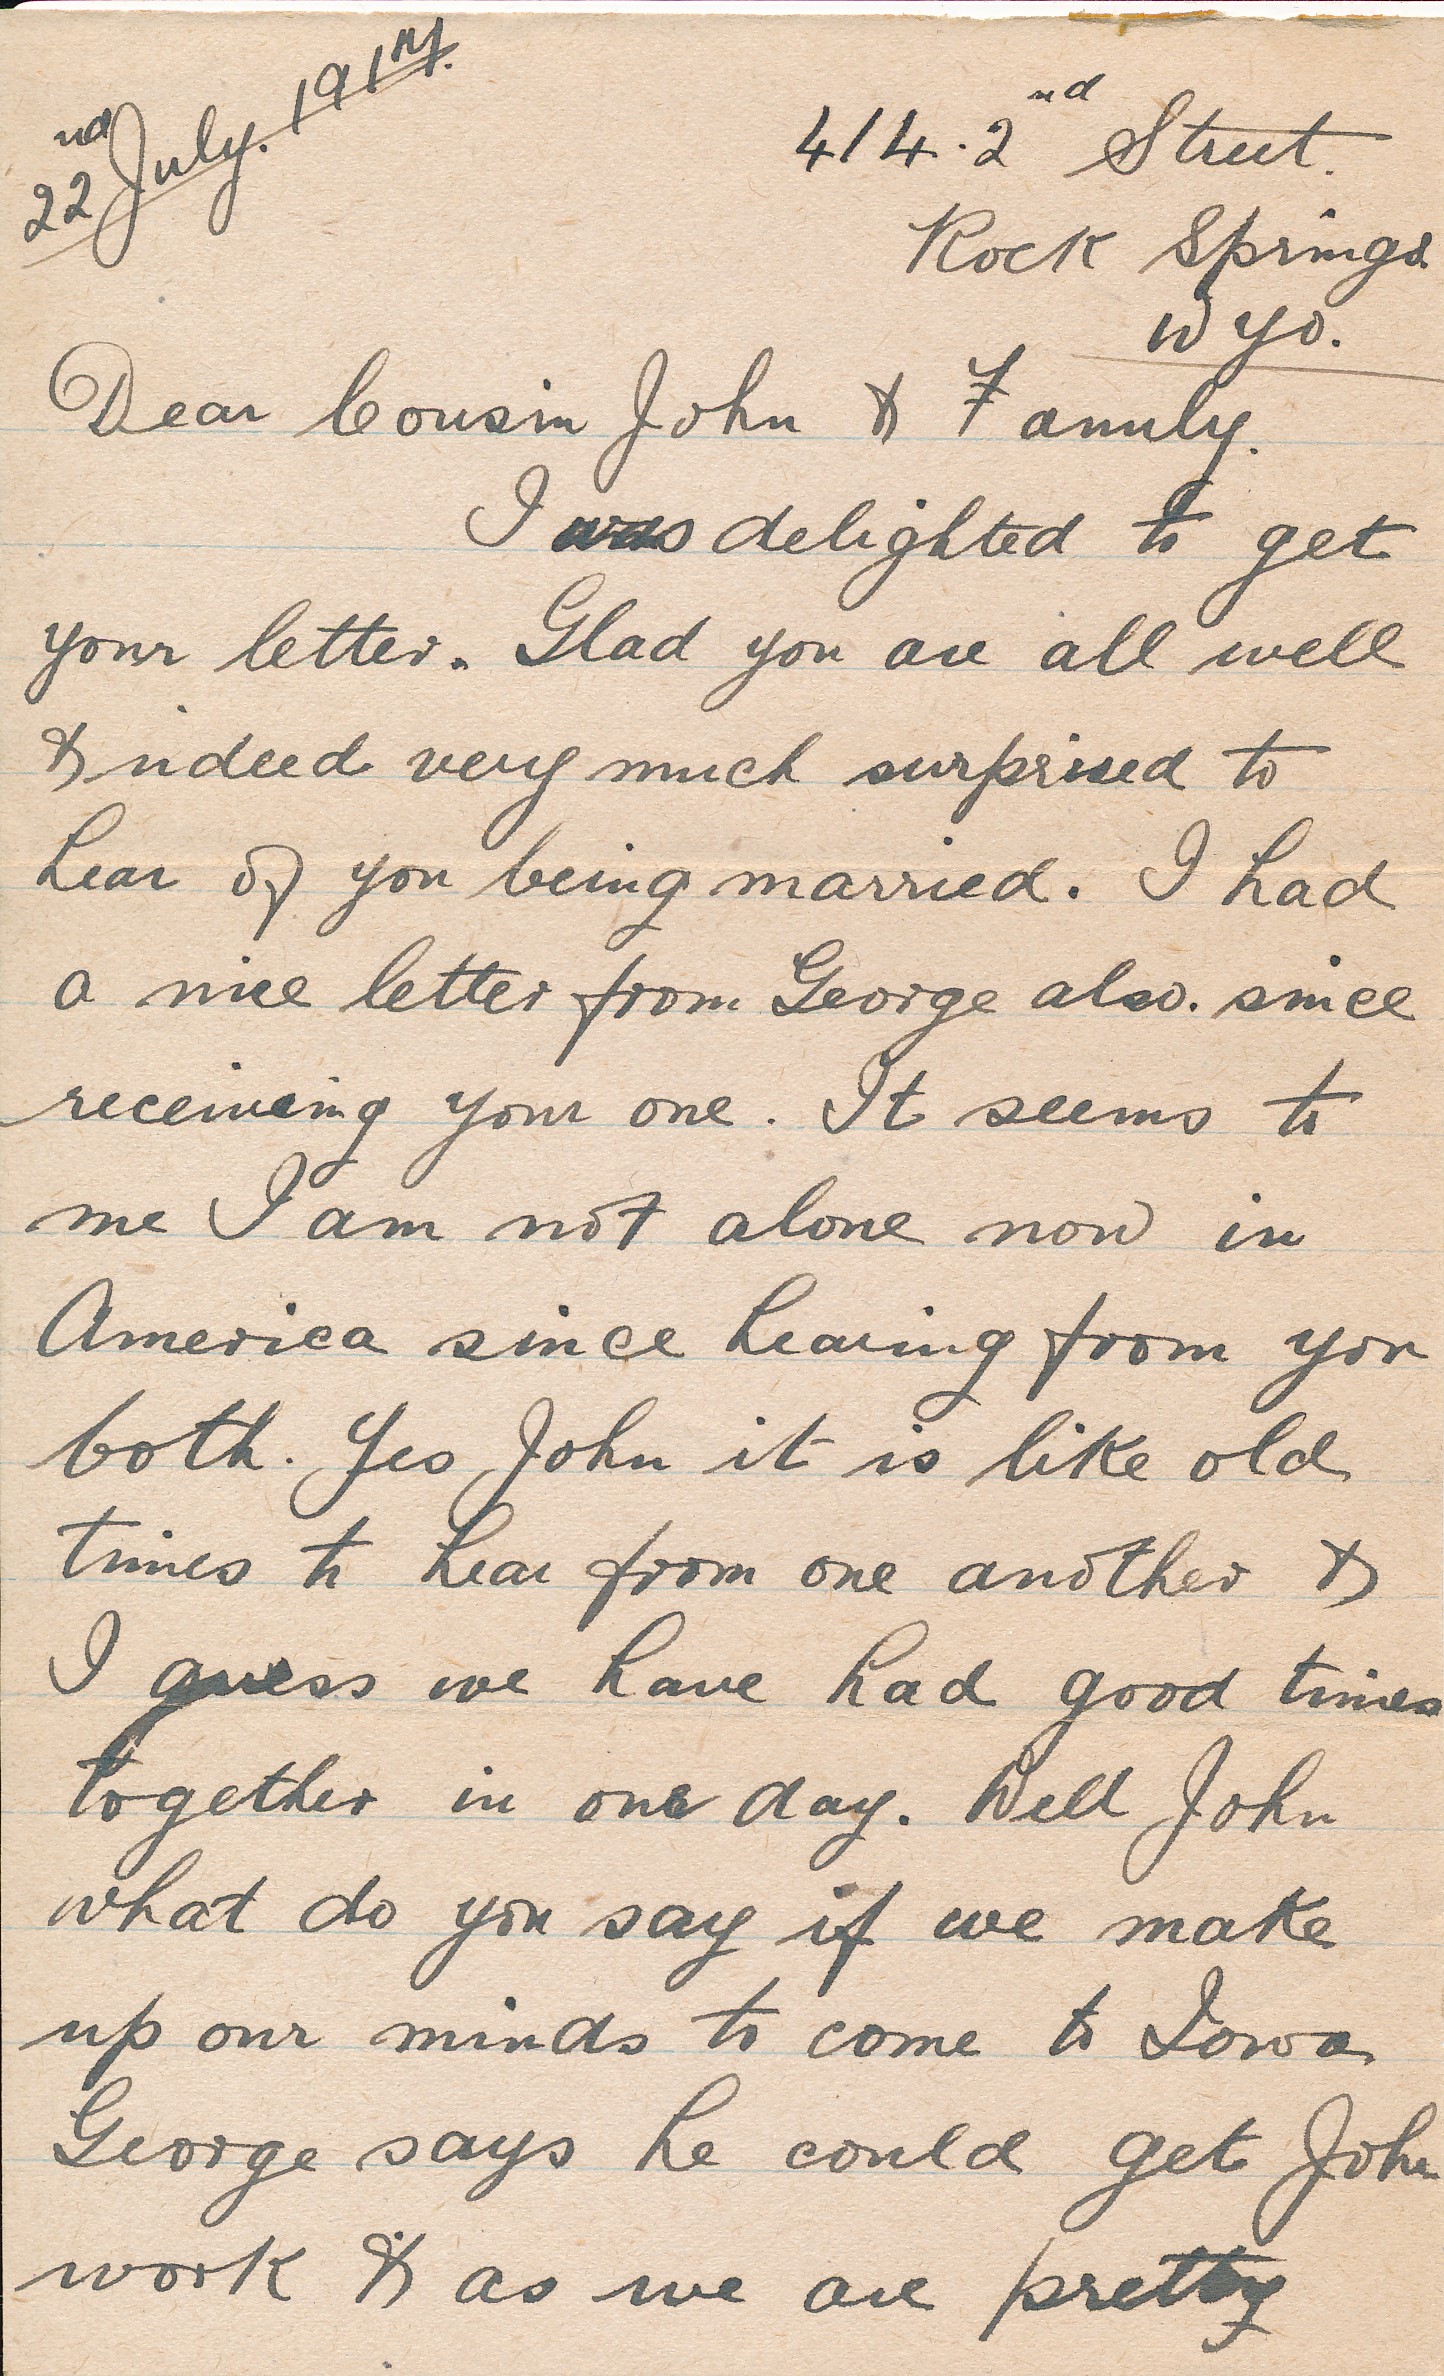 22nd July. 191
414. 2nd Street.
Rock Springs.
Wyo.
Dear Cousin John & Family.
I was delighted to get
your letter. Glad you are all well
& indeed very much surprised to
hear of you being married. I had
a nice letter from George also. since
receiving your one. It seems to
me I am not alone now in
America since hearing from you
both. Yes John it is like old
times to hear from one another &
I guess we have had good times
together in one day. Well John
what do you say if we make
up our minds to come to Iowa
George says he could get John
work & as we are pretty